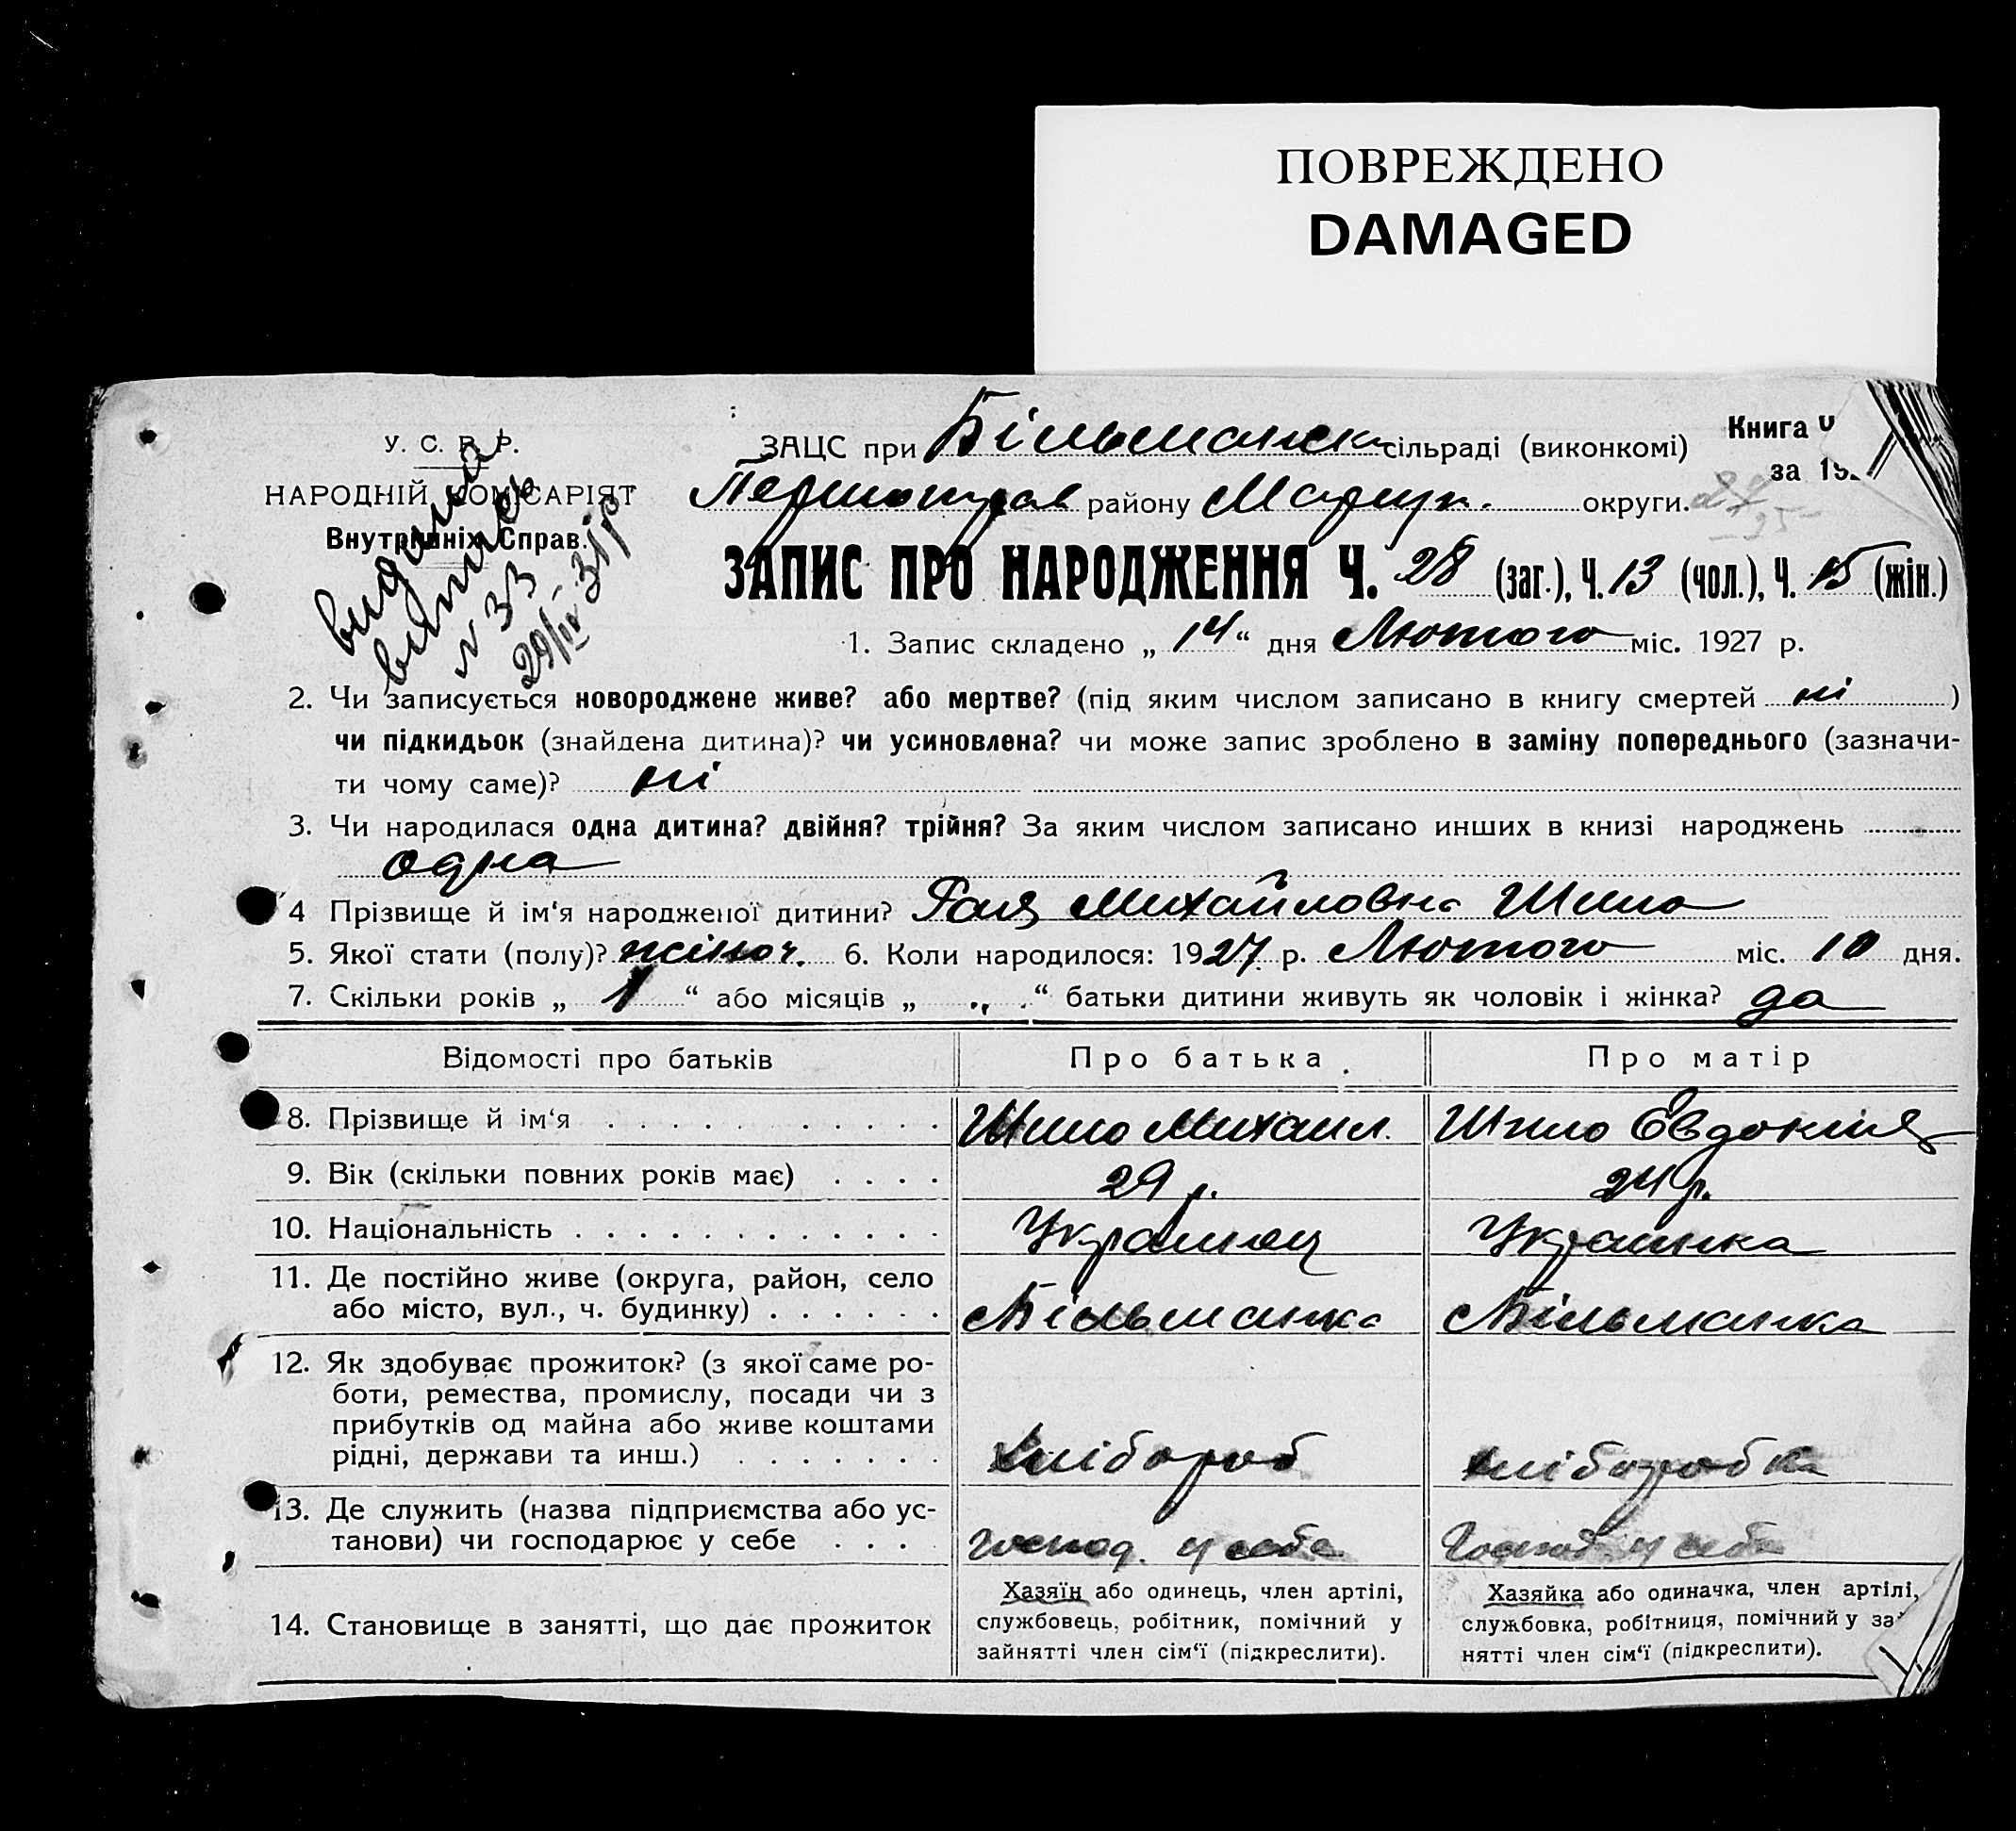 ПОВРЕЖДЕНО
DAMAGED
У. С. Р. Р.
НАРОДНІЙ КОМІСАРІЯТ
Внутрішніх Справ.
видана
випись
N 33
29/IV 31 р
ЗАЦС при Більманск сільраді (виконкомі)
Книга
Першотрав району Маріуп. округи.
за 192
ЗАПИС ПРО НАРОДЖЕННЯ Ч. 28 (заг.), Ч. 13 (чол.), Ч. 15 (жін.)
1. Запис складено „ 14 “ дня Лютого міс. 1927 р.
2. Чи записується новороджене живе? або мертве? (під яким числом записано в книгу смертей ні )
чи підкидьок (знайдена дитина)? чи усиновлена? чи може запис зроблено в заміну попереднього (зазначи-
ти чому саме)? ні
3. Чи народилася одна дитина? двійня? трійня? За яким числом записано инших в книзі народжень
одна
4 Прізвище й ім‘я народженої дитини? Рая Михайловна Шило
5. Якої стати (полу)? жіноч. 6. Коли народилося: 1927 р. Лютого міс. 10 дня.
7. Скільки років „ 1 “ або місяців „ „ “ батьки дитини живуть як чоловік і жінка? да
Відомості про батьків
Про батька
Про матір
8. Прізвище й ім‘я
Шило Михаил.
Шило Евдокия
9. Вік (скільки повних років має)
29 р.
24 р.
10. Національність
Украинец
Украинка
11. Де постійно живе (округа, район, село
або місто, вул., ч. будинку)
Більманка
Більманка
12. Як здобуває прожиток? (з якої саме ро-
боти, ремества, промислу, посади чи з
прибутків од майна або живе коштами
рідні, держави та инш.)
хлібороб
хліборобка
13. Де служить (назва підприємства або ус-
танови) чи господарює у себе
господ. у себе
Господ у себе
14. Становище в занятті, що дає прожиток
Хазяїн або одинець, член артілі,
службовець, робітник, помічний у
зайнятті член сім‘ї (підкреслити).
Хазяйка або одиначка, член артілі,
службовка, робітниця, помічний у за
нятті член сім‘ї (підкреслити).